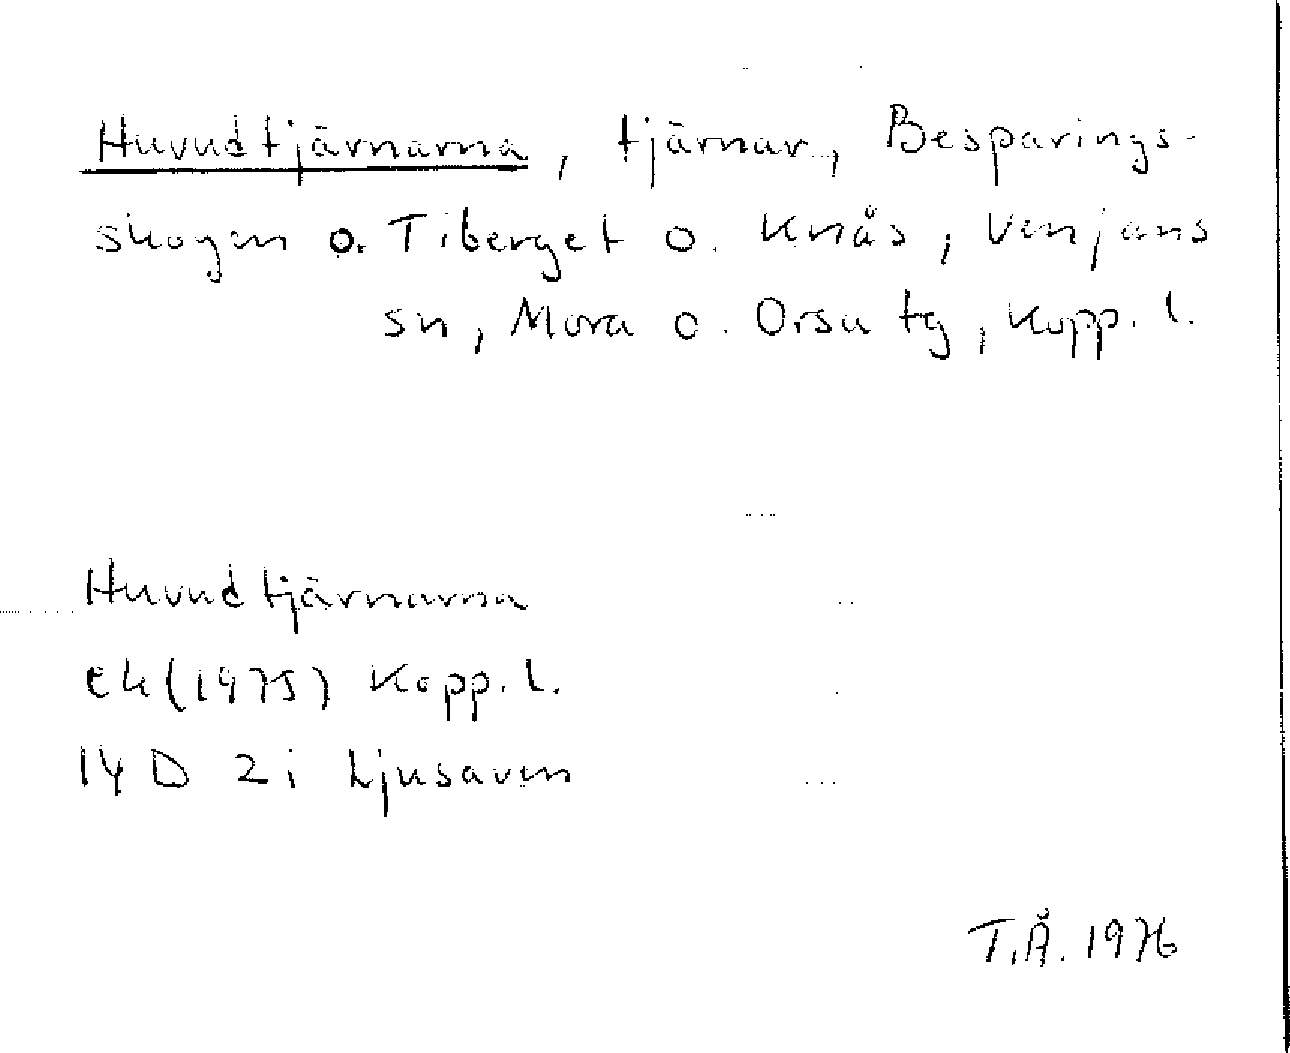 Huvudtjärnarna, tjärnar, Besparings-
skogen o. Tiberget o. Knås, Venjans
sn, Mora o. Orsa tg, Kopp. l.
Huvudtjärnarna
ek (1975) Kopp. l.
14 D 2i Ljusaven
T.Å. 1976